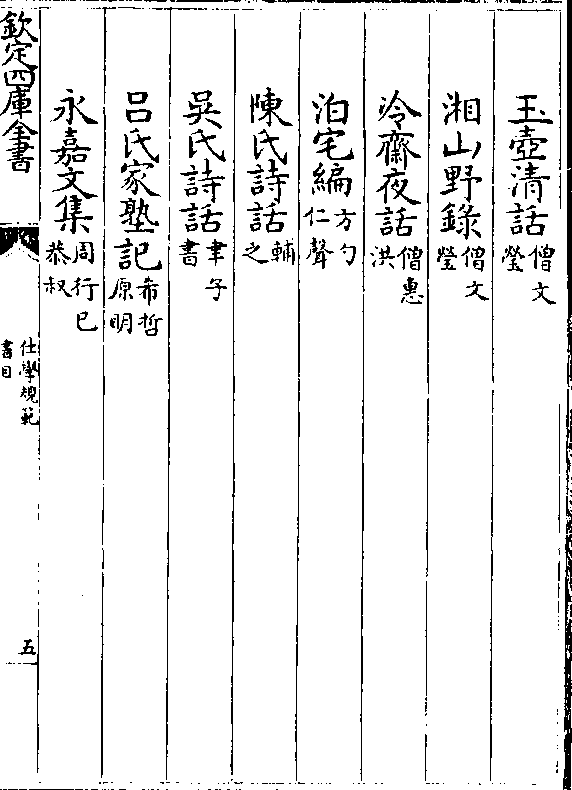 玉壺清話僧文瑩
湘山野錄僧文瑩
冷齋夜話僧惠洪
泊宅編方勺仁聲
陳氏詩話輔之
吳氏詩話聿子書
呂氏家塾記希哲原明
永嘉文集周行己恭叔
欽定四庫全書
仕學規範書目
五